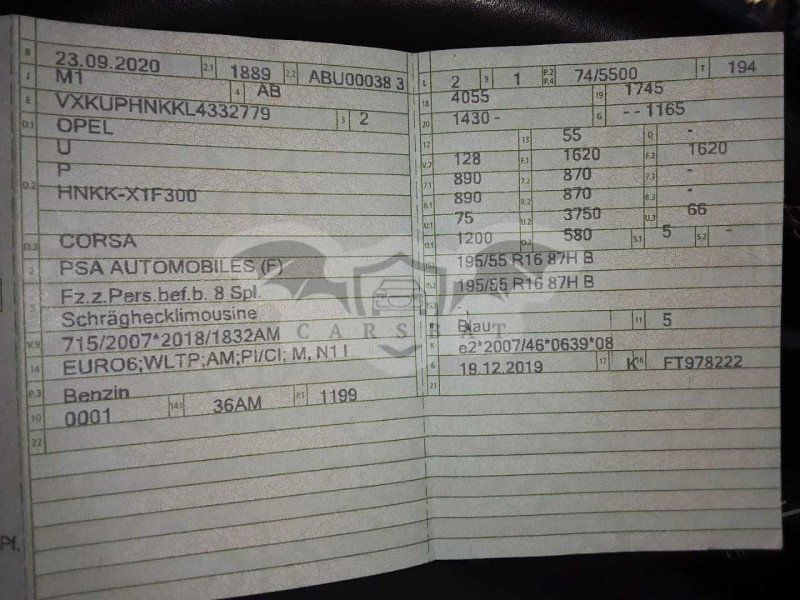 B 23.09.2020 2.1 1889 2.2 ABU00038 3
J M1 4 AB
E VXKUPHNKKL4332779 3 2
D.1 OPEL
U
P
D.2 HNKK-X1F300
D.3 CORSA
2 PSA AUTOMOBILES (F)
5 Fz.z.Pers.bef.b. 8 Spl.
Schräghecklimousine
V.9 715/2007*2018/1832AM
14 EURO6;WLTP;AM;PI/CI; M, N1 I
P.3 Benzin
10 0001 14.1 36AM P.1 1199
22
Pf.
L 2 9 1 P.2 P.4 74/5500 T 194
18 4055 19 1745
20 1430 - G - - 1165
12 13 55 Q -
V.7 128 F.1 1620 F.2 1620
7.1 890 7.2 870 7.3 -
8.1 890 8.2 870 8.3 -
U.1 75 U.2 3750 U.3 66
O.1 1200 O.2 580 S.1 5 S.2 -
195/55 R16 87H B
195/55 R16 87H B
-
R Blau 11 5
K e2*2007/46*0639*08
6 19.12.2019 17 K 16 FT978222
21
CARSBAT